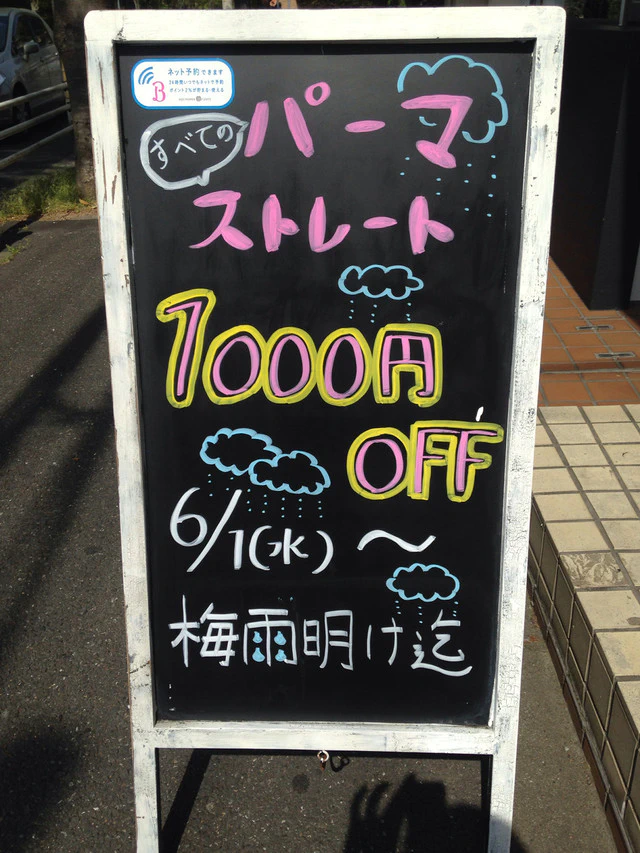 ネット予約できます
24時間いつでもネットで予約
ポイントどちが貯まる・使える
すべての
パーマ
ストレート
1000円
OFF
6/1(水)〜
梅雨明け迄